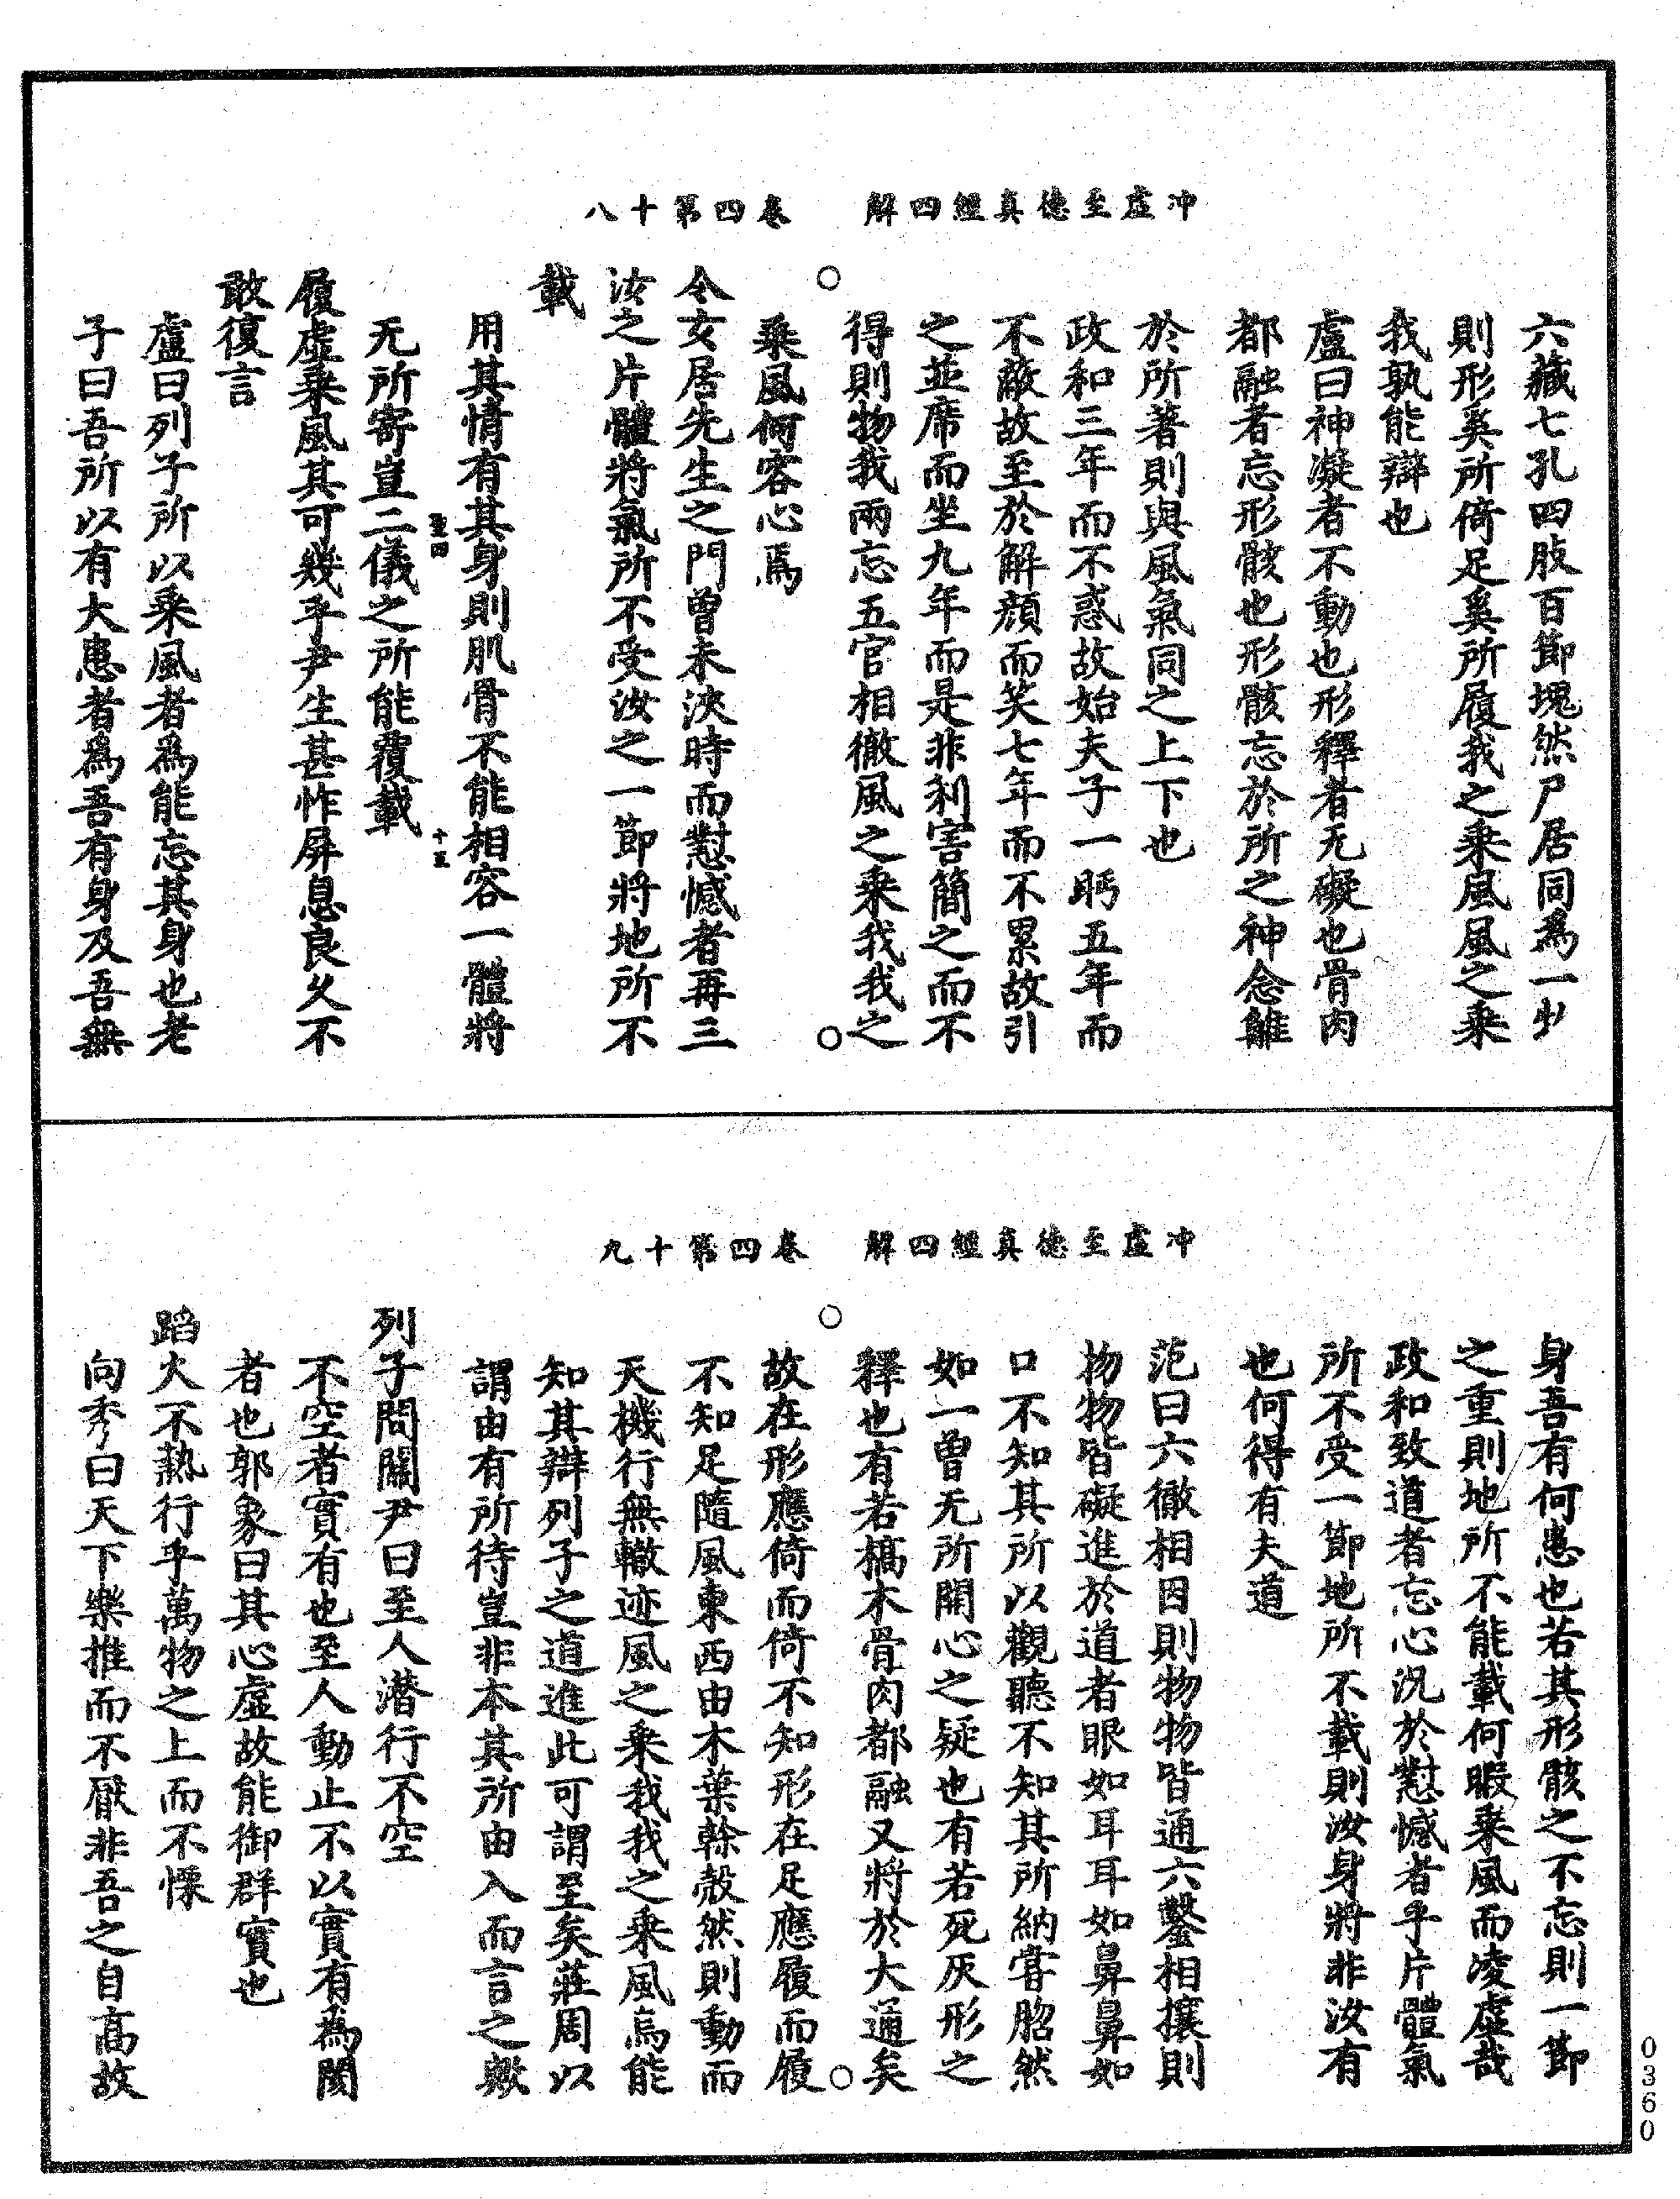 冲虛至德真經四解　卷四第十八
六藏七孔四肢百節塊然尸居同為一物
則形奚所倚足奚所履我之乘風風之乘
我孰能辯也
盧曰神凝者不動也形釋者无礙也骨肉
都融者忘形骸也形骸忘於所之神念離
於所著則與風氣同之上下也
政和三年而不惑故始夫子一眄五年而
不蔽故至於解顏而笑七年而不累故引
之並席而坐九年而是非利害簡之而不
得則物我兩忘五官相徹風之乘我我之
○乘風何容心焉○
令女居先生之門曾未浹時而懟憾者再三
汝之片體將氣所不受汝之一節將地所不
載
用其情有其身則肌骨不能相容一體將
无所寄豈二儀之所能覆載
聖四　十五
履虛乘風其可幾乎尹生甚怍屏息良久不
敢復言
盧曰列子所以乘風者為能忘其身也老
子曰吾所以有大患者為吾有身及吾無
冲虛至德真經四解　卷四第十九
身吾有何患也若其形骸之不忘則一節
之重則地所不能載何暇乘風而凌虛哉
政和致道者忘心況於懟憾者乎片體氣
所不受一節地所不載則汝身將非汝有
也何得有夫道
范曰六徹相因則物物皆通六鑿相攘則
物物皆礙進於道者眼如耳耳如鼻鼻如
口不知其所以觀聽不知其所納嘗脗然
如一曾无所開心之疑也有若死灰形之
釋也有若槁木骨肉都融又將於大通矣
○故在形應倚而倚不知形在足應履而履○
不知足隨風東西由木葉幹殼然則動而
天機行無轍迹風之乘我我之乘風烏能
知其辯列子之道進此可謂至矣莊周以
謂由有所待豈非本其所由入而言之歟
列子問關尹曰至人潛行不空
不空者實有也至人動止不以實有為閡
者也郭象曰其心虛故能御群實也
蹈火不熱行乎萬物之上而不慄
向秀曰天下樂推而不厭非吾之自高故
0360